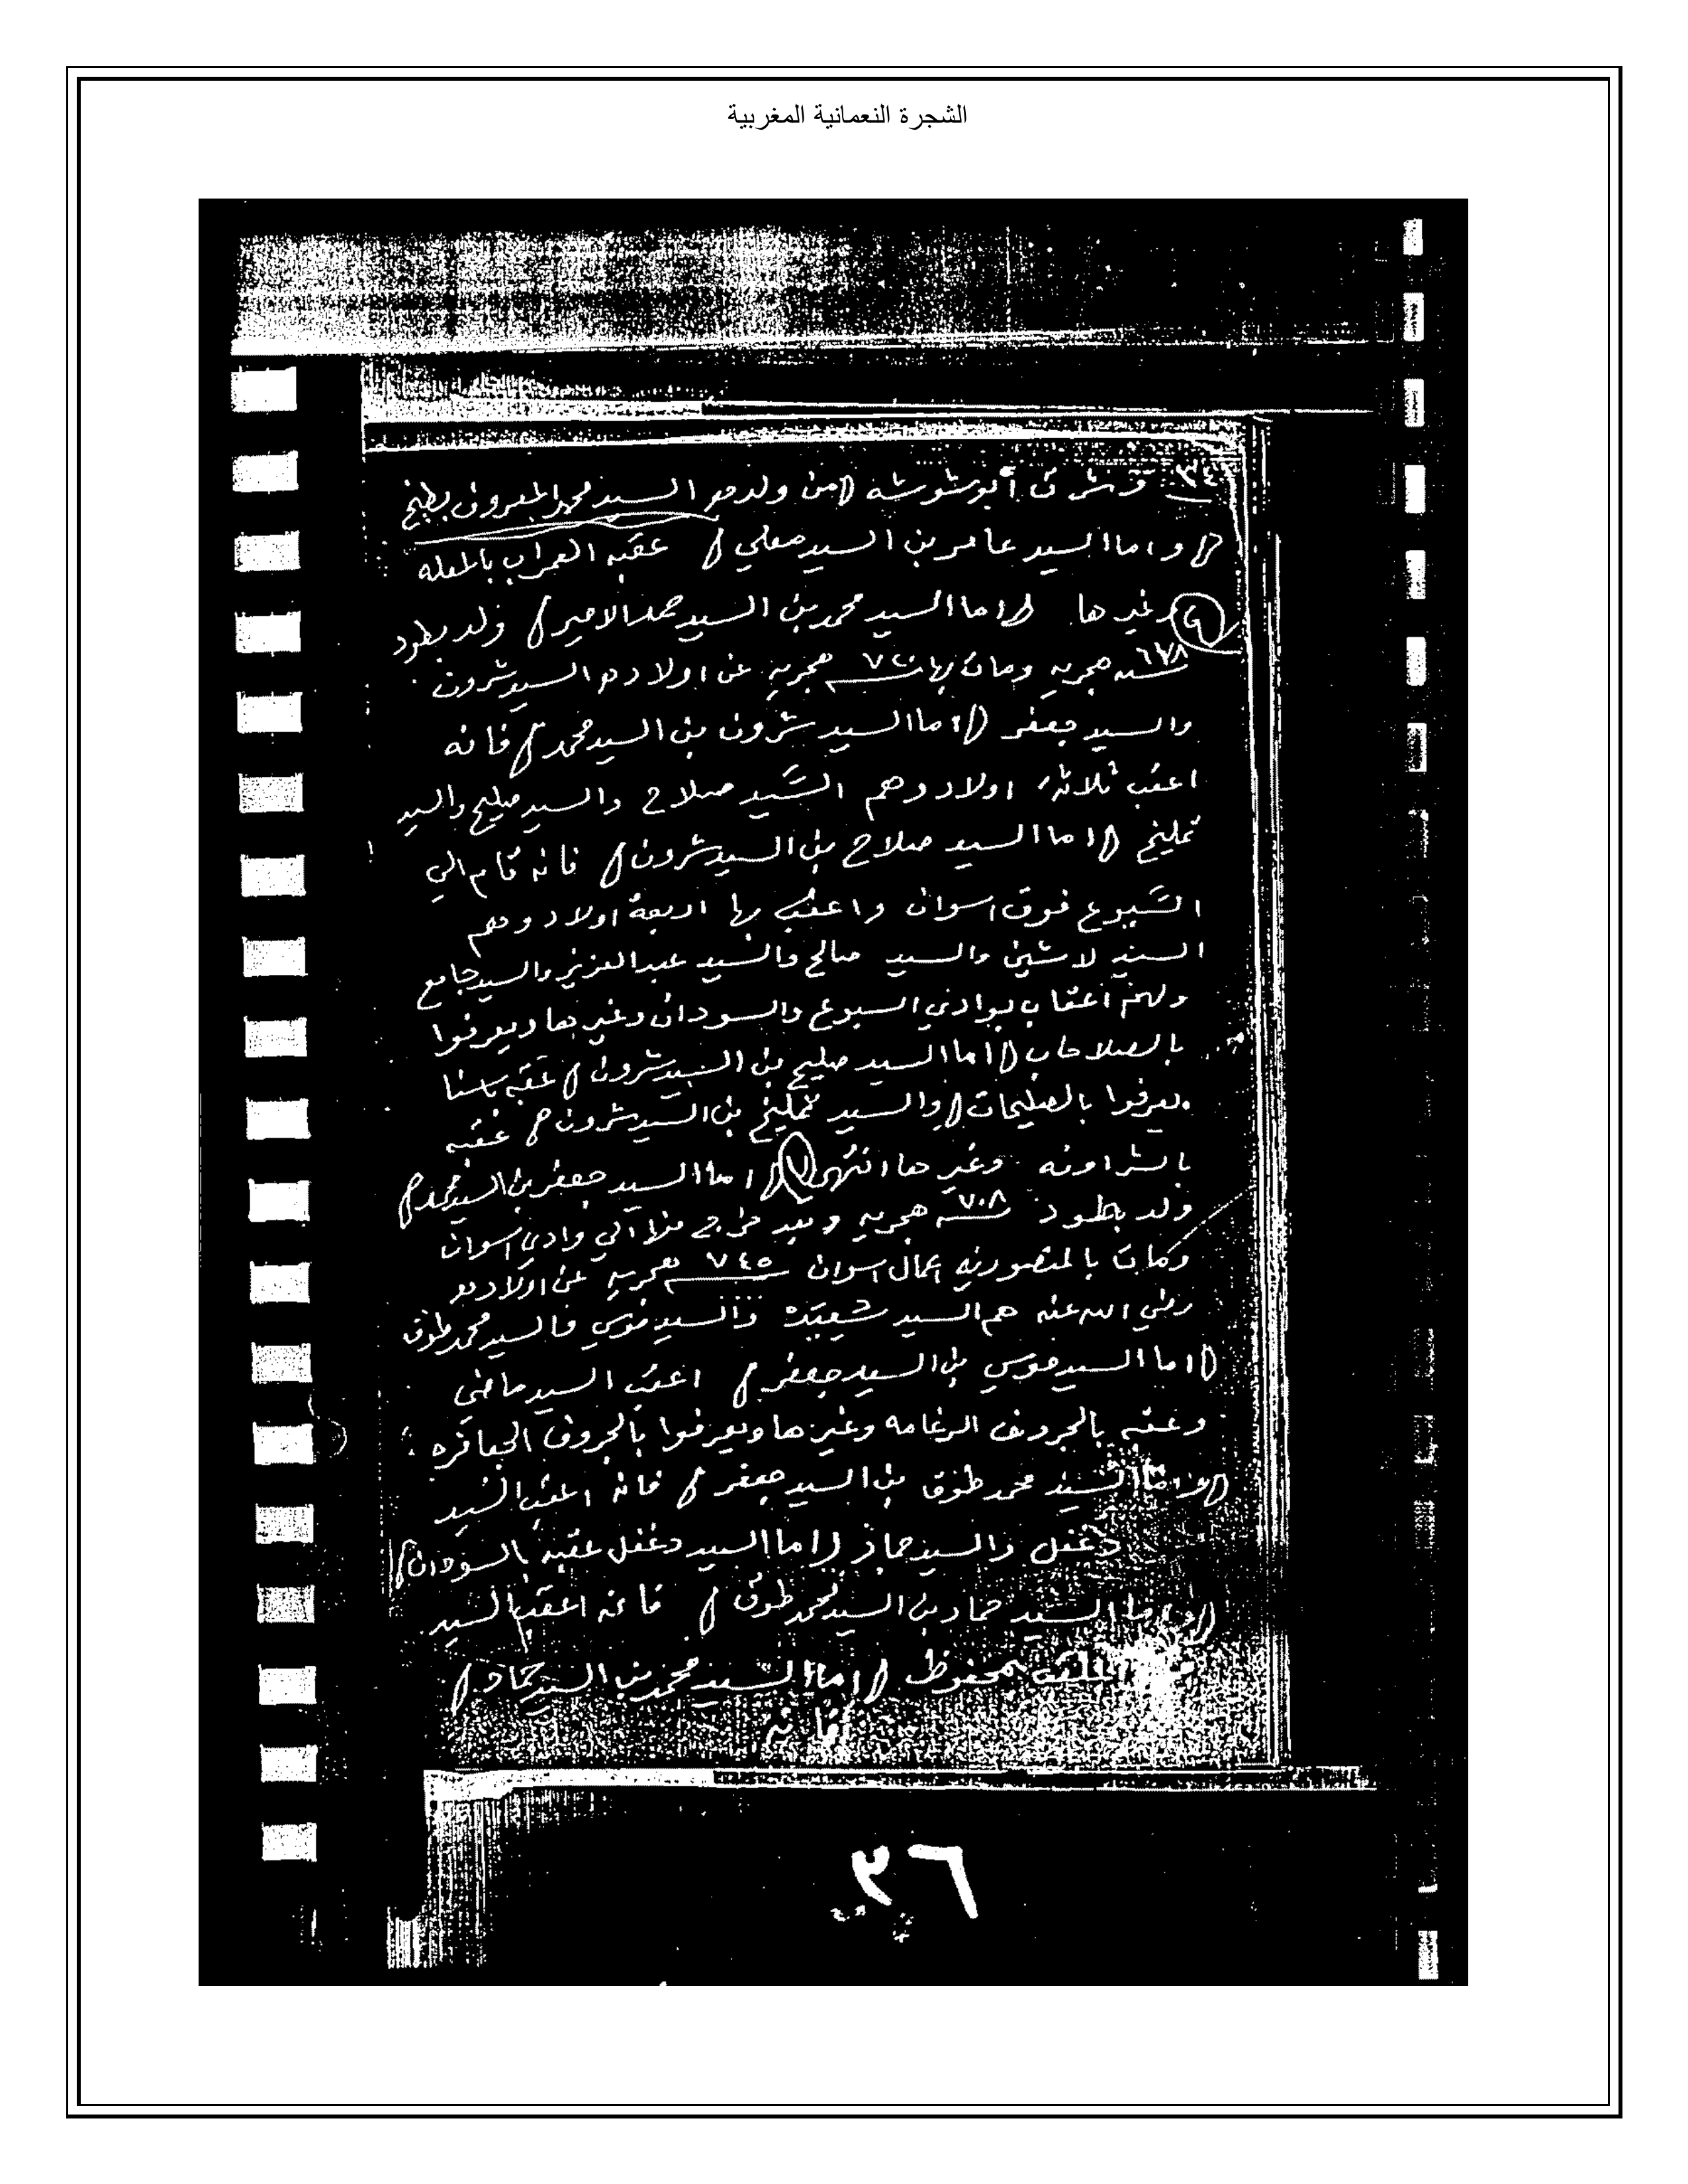 الشجرة النعمانية المغربية
٣٤ وشرق أبوشوشه ( من ولده السيد محمد المعروف بطيخ
( واما السيد عامر بن السيد معلي ) عقبه العمراب بالمعله
وغيرها ( اما السيد محمد بن السيد حمد الامير ) ولد بطود
سنه ٦٧٨ هجريه ومات بها سنه هجريه عن اولاده السيد شرون
والسيد جعفر ( اما السيد شرون بن السيد محمد ) فانه
اعقب ثلاثه اولاد وهم السيد صلاح والسيد صليح والسيد
تمليخ ( اما السيد صلاح بن السيد شرون ) فانه قام الي
السبوع فوق اسوان واعقب بها اربعة اولاد وهم
السيد لاشين والسيد صالح والسيد عبد العزيز والسيد جامع
ولهم اعقاب بوادي السبوع والسودان وغيرها ويعرفوا
بالصلاحاب ( اما السيد صليح بن السيد شرون ) عقبه باسنا
ويعرفوا بالصليحات ( والسيد تمليخ بن السيد شرون ) عقبه
بالشراونه وغيرها انتهى ٧ ( اما السيد جعفر بن السيد محمد )
ولد بطود سنه ٧٠٨ هجريه وبعد خرج منها الي وادي اسوان
ومات بالمنصوريه اعمال اسوان سنه ٧٤٥ هجريه عن اولاده
رضي الله عنه هم السيد والسيد موسي فالسيد محمد طوق
( اما السيد موسي بن السيد جعفر ) اعقب السيد ماضي
وعقبه بالجروف الرغامه وغيرها ويعرفوا بالجروف الجعافره
( واما السيد محمد طوق بن السيد جعفر ) فانه اعقب السيد
دغفل والسيد حماد ( اما السيد دغفل عقبه بالسودان )
( واما السيد حماد بن السيد محمد طوق ) فانه اعقب السيد
محفوظ ( اما السيد محمد بن السيد حماد )
فانه
٣٦